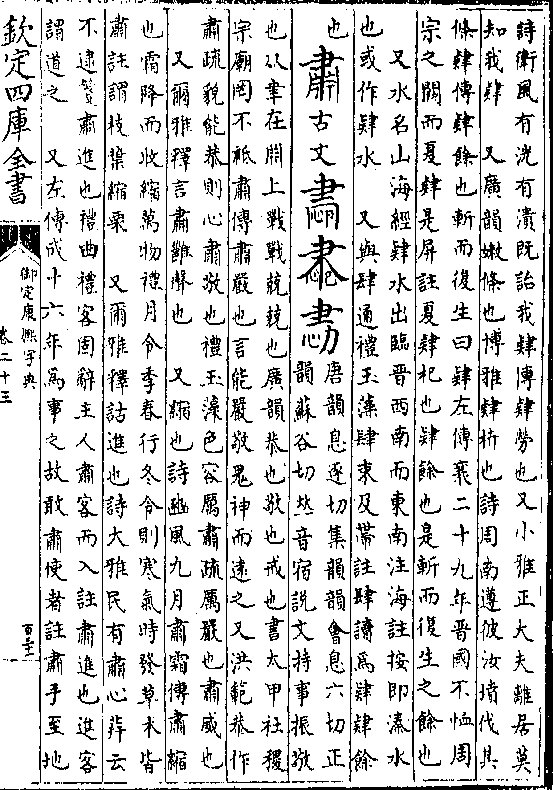 詩衛風有洸有潰既詒我肄傳肄勞也又小雅正大夫離居莫
知我肄　又廣韻嫩條也博雅肄枿也詩周南遵彼汝墳伐其
條肄傳肄餘也斬而復生曰肄左傳襄二十九年晉國不恤周
宗之闕而夏肄是屏註夏肄杞也肄餘也是斬而復生之餘也
又水名山海經肄水出臨晉西南而東南注海註按即溱水
也或作肆水　又與肆通禮玉藻肆束及帶註肆讀為肄肄餘
也
肅古文　唐韻息逐切集韻韻會息六切正
韻蘇谷切𠀤音宿說文持事振敬
也从聿在𣶒上戰戰兢兢也廣韻恭也敬也戒也書太甲社稷
宗廟罔不祗肅傳肅嚴也言能嚴敬鬼神而遠之又洪範恭作
肅疏貌能恭則心肅敬也禮玉藻色容厲肅疏厲嚴也肅威也
又爾雅釋言肅雝聲也　又縮也詩豳風九月肅霜傳肅縮
也霜降而收縮萬物禮月令季春行冬令則寒氣時發草木皆
肅註謂枝葉縮栗　又爾雅釋詁進也詩大雅民有肅心荓云
不逮箋肅進也禮曲禮客固辭主人肅客而入註肅進也進客
謂道之　又左傳成十六年為事之故敢肅使者註肅手至地
欽定四庫全書
御定康熙字典
卷二十三